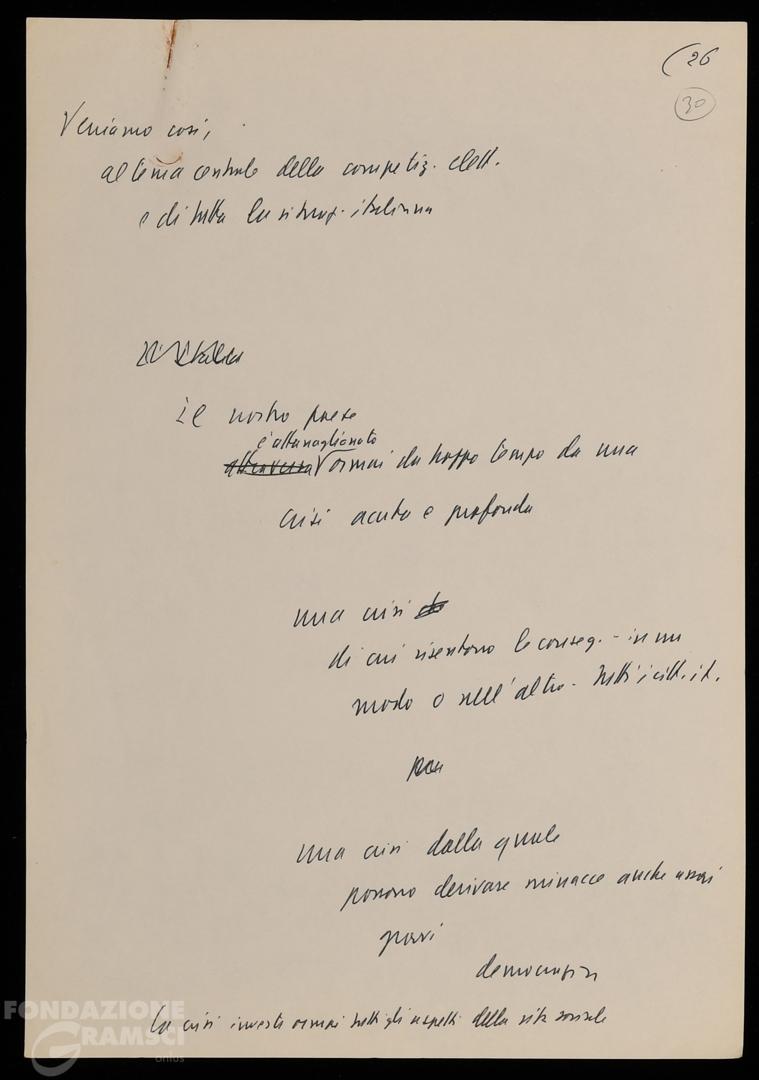 (26
30
Veniamo così,
al tema centrale della competiz. elett.
e di tutta la situaz. italiana
L'Italia
Il nostro paese
è attanagliato
attraversa ormai da troppo tempo da una
crisi acuta e profonda
una crisi
di cui risentono le conseg. - in un
modo o nell'altro - tutti i citt. it.
una crisi dalla quale
possono derivare minacce anche assai
gravi
democrazia
la crisi investe ormai tutti gli aspetti della vita sociale
FONDAZIONE
GRAMSCI
onlus